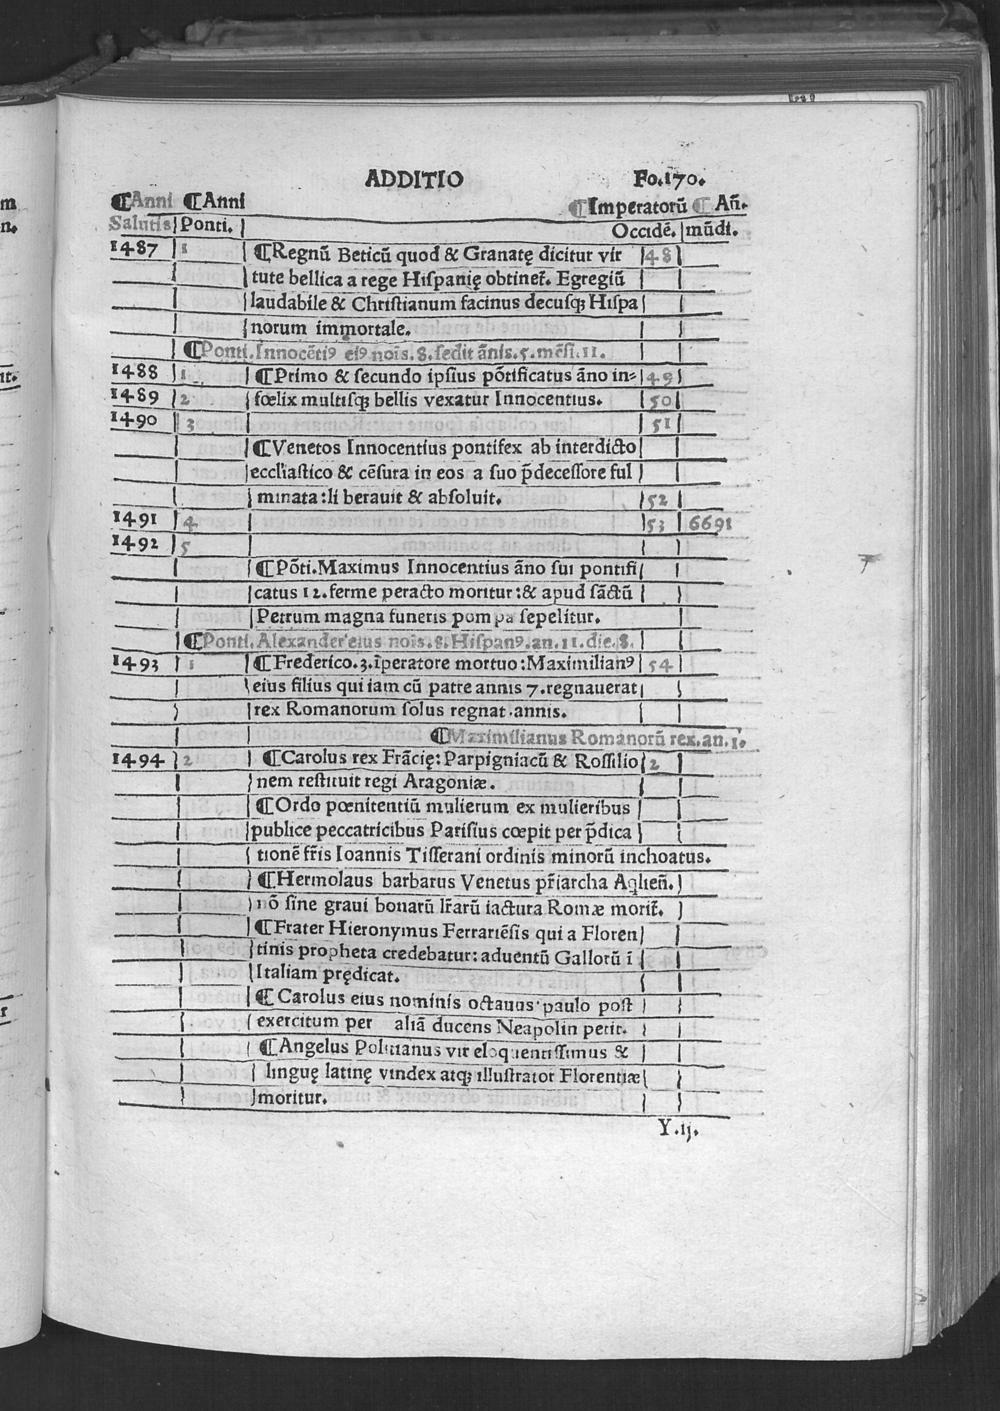 ADDITIO Fo.170.
⸿Anni ⸿Anni ⸿Imperatorū ⸿ Añ.
Salutis Ponti. Occidē. mūdi.
1487 1 ⸿Regnū Beticū quod & Granatę dicitur vir 48
tute bellica a rege Hispanię obtinet̄. Egregiū
laudabile & Christianum facinus decusq; Hispa
norum immortale.
⸿Ponti. Innocētiꝰ eiꝰ nois. 8. sedit ānis. 5. mēsi. 11.
1488 1 ⸿Primo & secundo ipsius pōtificatus āno in= 49
1489 2 fœlix multisq; bellis vexatur Innocentius. 50
1490 3 51
⸿Venetos Innocentius pontifex ab interdicto
eccl'iastico & cēsura in eos a suo p̄decessore ful
minata:li berauit & absoluit. 52
1491 4 53 6691
1492 5
⸿Pōti.Maximus Innocentius āno sui pontifi
catus 12.ferme peracto moritur:& apud sāctū
Petrum magna funeris pompa sepelitur.
⸿Ponti. Alexander eius nois. 8. Hispanꝰ. an. 11. die. 8.
1493 1 ⸿Frederico.3.īperatore mortuo:Maximilianꝰ 54
eius filius qui iam cū patre annis 7.regnauerat
rex Romanorum solus regnat.annis.
⸿Maximilianus Romanorū rex.an.1.
1494 2 ⸿Carolus rex Frācię:Parpigniacū & Rossilio 2
nem restituit regi Aragoniæ.
⸿Ordo pœnitentiū mulierum ex mulieribus
publice peccatricibus Parisius cœpit per p̄dica
tionē fr̄is Ioannis Tisserani ordinis minorū inchoatus.
⸿Hermolaus barbarus Venetus pr̄iarcha Aqlieñ.
nō sine graui bonarū lr̄arū iactura Romæ morit̄.
⸿Frater Hieronymus Ferrariēsis qui a Floren
tinis propheta credebatur:aduentū Gallorū ī
Italiam prędicat.
⸿Carolus eius nominis octauus paulo post
exercitum per aliā ducens Neapolin petit.
⸿Angelus Politianus vir eloquentissimus &
linguę latinę vindex atq; illustrator Florentiæ
moritur.
Y.ij.